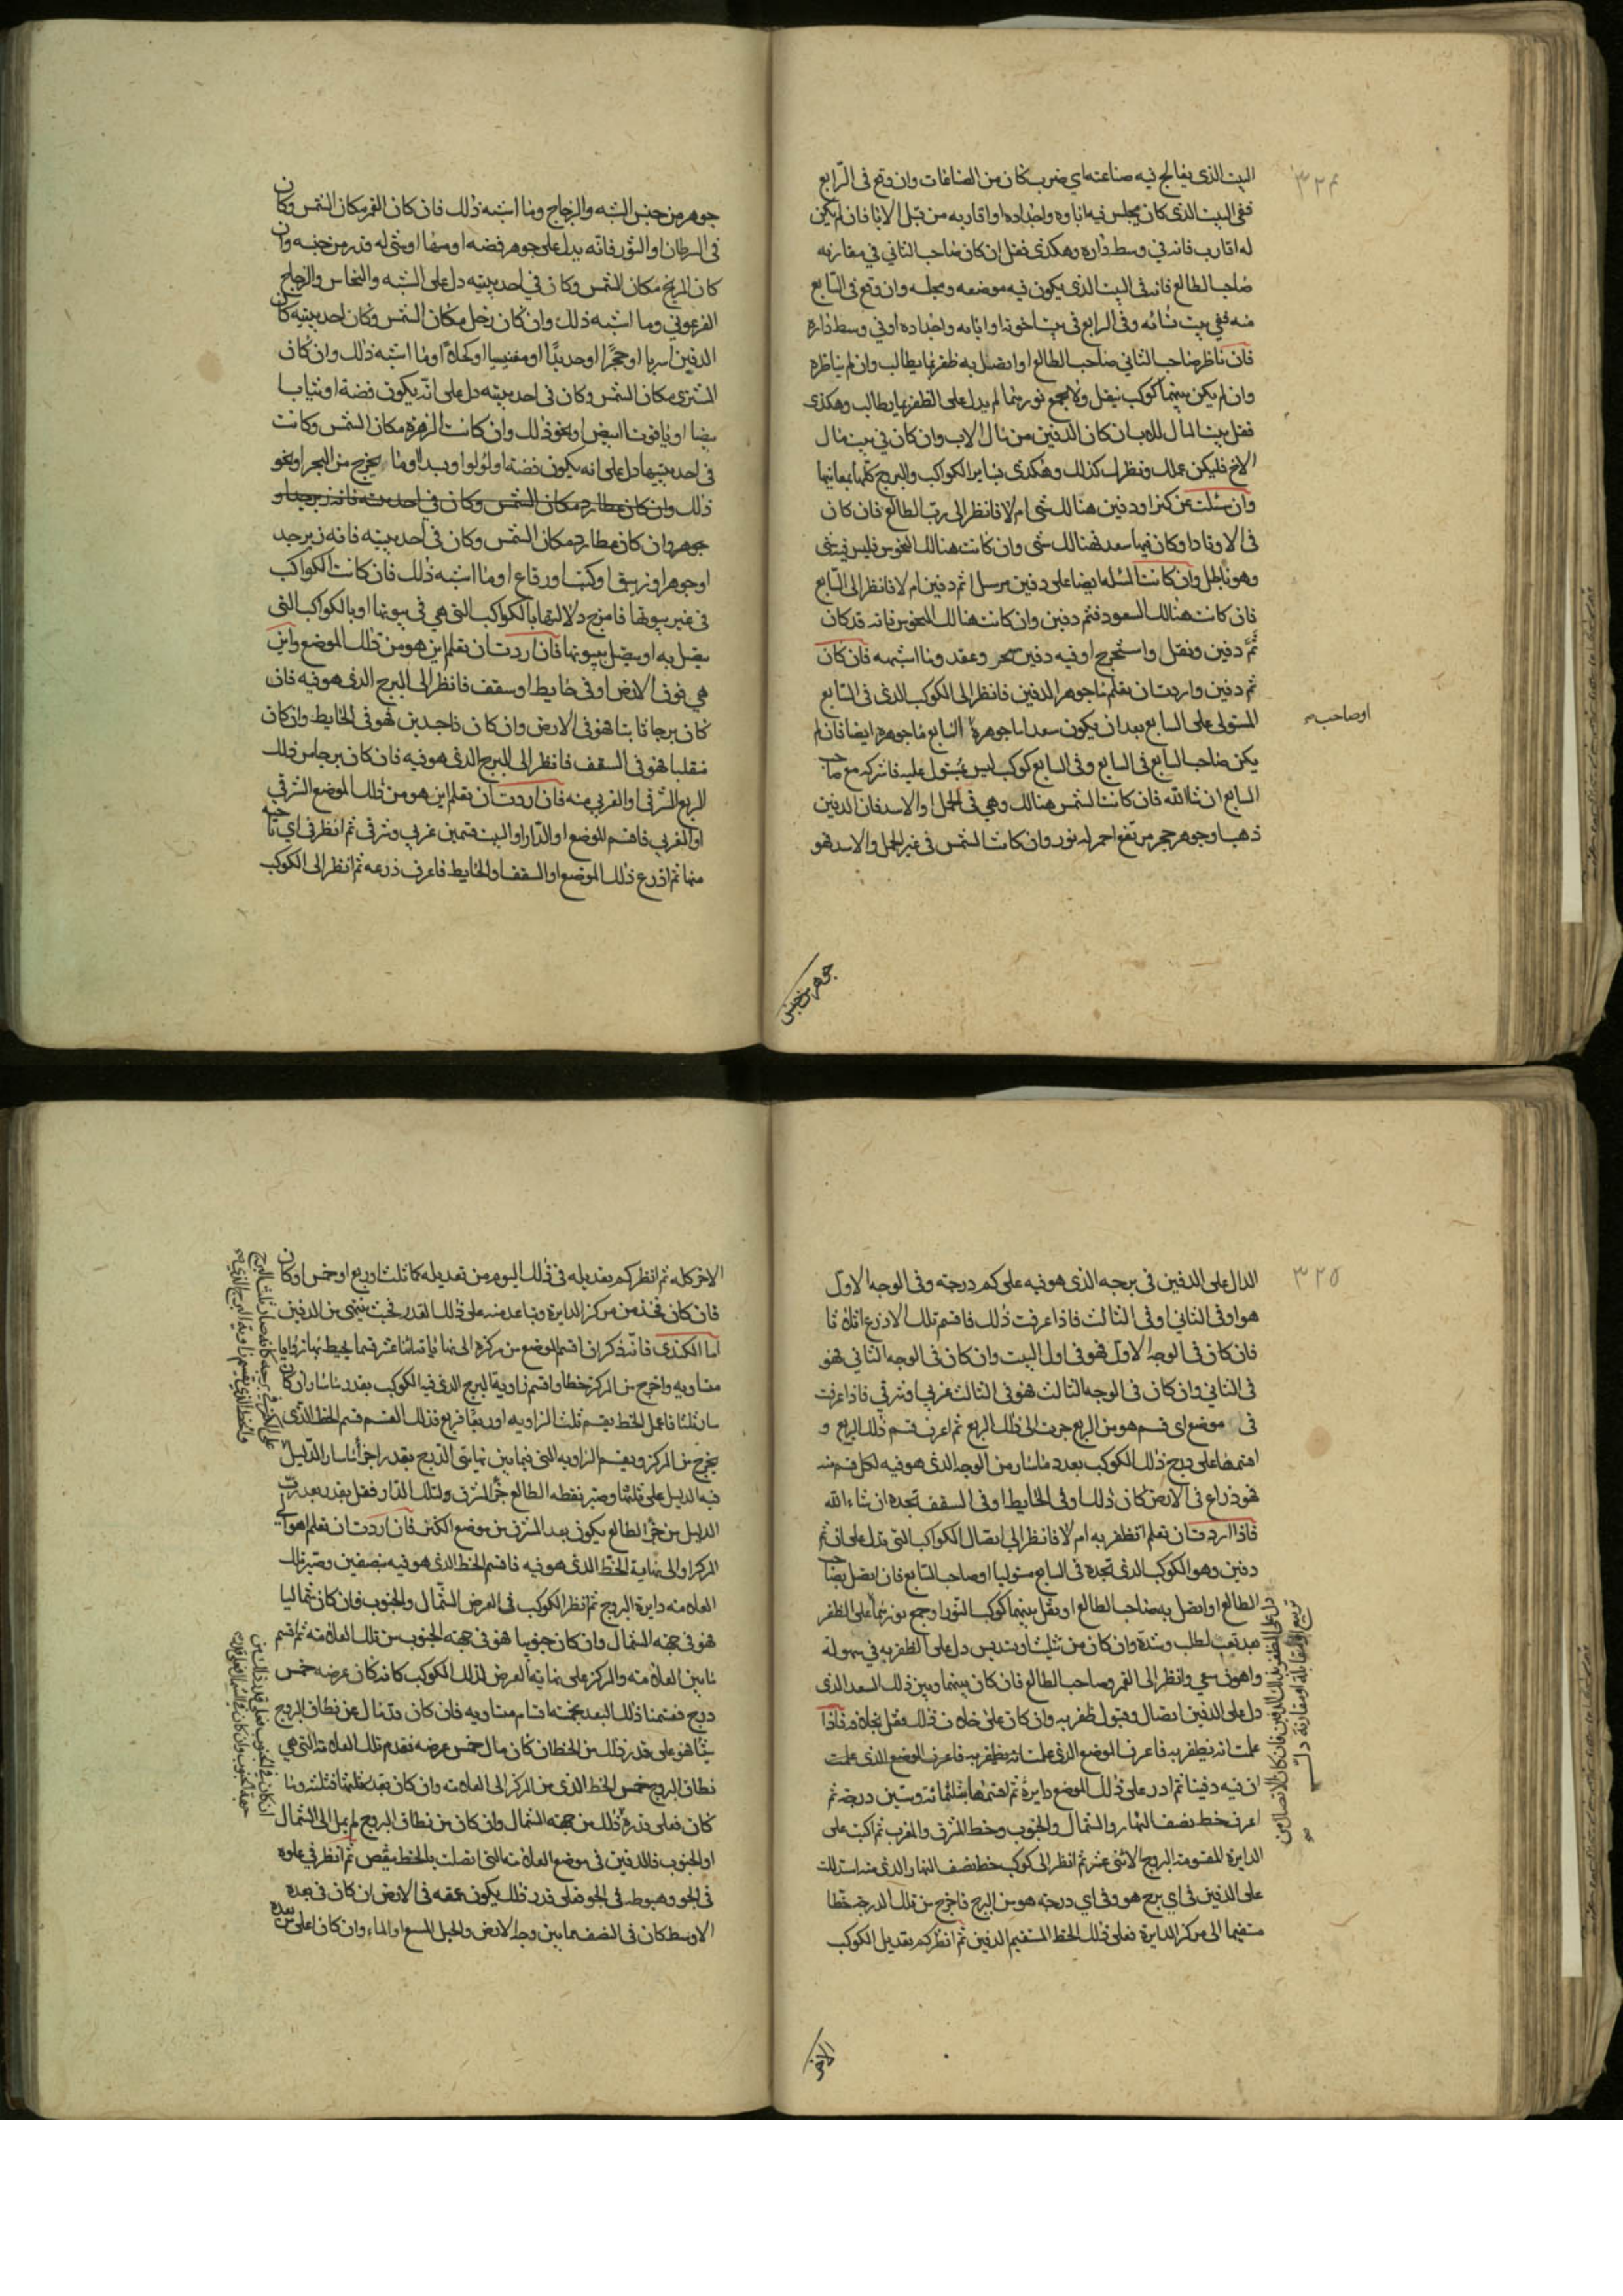 ٣٢٤
البيت الذى يعالج فيه صناعته اي ضرب كان من الصناعات وان وقع فى الرابع
ففى البيت الذى كان يجلس فيه اباوه واجداده او اقاربه من قبل الابا فان لم يكن
له اقارب فانه في وسط داره وهكذى فقل ان كان صاحب الثاني في مقارنه
صاحب الطالع فانه فى البيت الذى يكون فيه موضعه ومجلسه وان وقع فى السابع
منه ففي بيت نسائه وفى الرابع فى بيت اخوته او ابائه واجداده او في وسط داره
فان ناظر صاحب الثاني صاحب الطالع او اتصل به ظفر بما يطالب وان لم يناظره
وان لم يكن بينهما كوكب ينقل ولا يجمع نورهما لم يدل على الظفر بما يطالب وهكذى
فقل بيت المال للاب ان كان الدفين من مال الاب وان كان في بيت مال
الاخ فليكن عملك ونظرك كذلك وهكذى بساير الكواكب والبروج كلها بمعانيها
وان سئلت عن كنز او دفين هنالك شى ام لا فانظر الى رب الطالع فان كان
فى الاوتاد او كان فيها سعد فهنالك شى وان كانت هنالك النحوس فليس فيه شى
وهو باطل وان كانت المسله ايضا على دفين مرسل اثم دفين ام لا فانظر الى السابع
فان كانت هنالك السعود فثم دفين وان كانت هنالك النحوس فانه قد كان
ثم دفين ونقل واستخرج او فيه دفين سحر وعقد وما اشبهه فان كان
ثم دفين واردت ان تعلم ما جوهر الدفين فانظر الى الكوكب الذى فى السابع
المستولى على السابع بعد ان يكون سعدا ما جوهره السابع ما جوهره ايضا فان لم
اوصاحب
يكن صاحب السابع فى السابع وفى السابع كوكب ليس بمستول عليه فاشركه مع صاحب
السابع ان شاالله فان كانت الشمس هنالك وهي فى الحمل او الاسد فان الدفين
ذهب او جوهر حجر مرتفع احمر له نور وان كانت الشمس فى غير الحمل والاسد فهو
جوهر من جنس
جوهر من جنس الشبه والزجاج وما اشبه ذلك فان كان القمر مكان الشمس وكان
فى السرطان او الثور فانه يدل على جوهر فضه او سهما او شى له قدر من جنسه وان
كان المريخ مكان الشمس وكان في احد بيتيه دل على الشبه والنحاس والزجاج
الفرعوني وما اشبه ذلك وان كان زحل مكان الشمس وكان احد بيتيه كان
الدفين اسربا او حجرا او حديدا او مغنيسيا او كحلا او ما اشبه ذلك وان كان
المشترى مكان الشمس وكان فى احد بيتيه دل على انه يكون فضة او ثيابا
بيضا او ياقوتا ابيض او نحو ذلك وان كانت الزهرة مكان الشمس وكانت
فى احد بيتيها دل على انه يكون فضة او لؤلوا او بسدا او ما يخرج من البحر او نحو
ذلك وان كان عطارد مكان الشمس وكان فى احد بيته فانه زبرجد او
جوهر وان كان عطارد مكان الشمس وكان في احد بيتيه فانه زبرجد
او جوهر او زيبق او كتب او رقاع او ما اشبه ذلك فان كانت الكواكب
فى غير بيوتها فامزج دلالتها بالكواكب التى هي فى بيوتها او بالكواكب التى
يتصل به او يتصل ببيوتها فان اردت ان تعلم اين هو من ذلك الموضع واين
هي فوق الارض او فى حايط او سقف فانظر الى البرج الذى هو فيه فان
كان برجا ثابتا فهو فى الارض وان كان ذا جسدين فهو فى الحايط وان كان
منقلبا فهو فى السقف فانظر الى البرج الذى هو فيه فان كان برجا من ذلك
الربع الشرقى او الغربي منه فان اردت ان تعلم اين هو من ذلك الموضع الشرقي
او الغربي فاقسم الموضع او الدار او البيت قسمين غربي وشرقى ثم انظر فى اي ناحيه
منها ثم اذرع ذلك الموضع او السقف او الحايط فاعرف ذرعه ثم انظر الى الكوكب
٣٢٥
الدال على الدفين فى برجه الذى هو فيه على كم درجته وفى الوجه الاول
هو او فى الثاني او فى الثالث فاذا عرفت ذلك فاقسم تلك الاذرع اثلاثا
فان كان فى الوجه الاول فهو فى اول البيت وان كان فى الوجه الثاني فهو
فى الثاني وان كان فى الوجه الثالث فهو فى الثالث غربي او شرقي فاذا عرفت
فى موضع اى قسم هو من الربع جزت الى ذلك الربع ثم اعرف قسم ذلك الربع و
اقسمها على درج ذلك الكوكب بعدد ما سار من الوجه الذى هو فيه لكل قسم منه
فهو ذراع فى الارض كان ذلك او فى الحايط او فى السقف تجده ان شاء الله
فاذا اردت ان تعلم اتظفر به ام لا فانظر الى اتصال الكواكب التى تدل على انه ثم
دفين وهو الكوكب الذى تجده فى السابع مستوليا او صاحب السابع فان اتصل بصاحب
الطالع او اتصل به صاحب الطالع او نقل بينهما كوكب النور او جمع نورهما على الظفر
بعد تعب لطلب وشدة وان كان من تثليث او تسديس دل على الظفر به في سهولة
واهون سعي وانظر الى القمر وصاحب الطالع فان كان بينهما وبين ذلك السعد الذى
دل على الدفين اتصال وقبول ظفر به وان كان على خلاف ذلك فقل بخلافه فاذا
علمت انه يظفر به فاعرف الموضع الذى علمت انه يظفر به فاعرف الموضع الذى علمت
ان فيه دفينا ثم ادر على ذلك الموضع دايرة ثم اقسمها بثلثمائة وستين درجة ثم
اعرف خط نصف النهار والشمال والجنوب وخط المشرق والمغرب ثم اكتب على
الدايرة المقسومة البروج الاثنى عشر ثم انظر الى كوكب خط نصف النهار والذى منه استدللت
على الدفين فى اي برج هو وفى اي درجة هو من البرج فاخرج من تلك الدرجة خطا
مستقيما الى مركز الدايرة فعلى ذلك الخط المستقيم الدفين ثم انظر كم تعديل الكوكب
دل على الظفر بذلك الدفين فان كان الاتصال من
تربيع او مقابلة او مقارنة دل
الاخر
الاخر كله ثم انظر كم تعديله فى ذلك اليوم من تعديله كما ثلث او ربع او خمس او كان
فان كان فخذ من مركز الدايرة وتباعد منه على ذلك القدر فحيث ينتهى من الدفين
اما الكندى فانه ذكر ان اقسم الموضع من مركزه الى نهاياته اثنا عشر قسما يحيط بها زوايا
متساويه واخرج من المركز خطا واقسم زاوية البرج الذى فيه الكوكب بقدر ما سار ان كان
سار ثلثا فاعمل الخط يقسم ثلث الزاويه او ربعا فربع فذلك القسم قسم الخط الذى
يخرج من المركز ويقسم الزاويه التى فيما بين نهايتى الدرج بقدر اجزأ ما سار الدليل
فيه الدليل على ثلثها وصير نقطه الطالع جزء المشرق ولتلك الدار فقل بقدر بعد
الدليل من جزء الطالع يكون بعد المشرق من موضع الكنز فان اردت ان تعلم اهو الى
المركز او الى نهاية الخط الذى هو فيه فاقسم الخط الذى هو فيه بنصفين وصير تلك
العلامه دايرة البروج ثم انظر الكوكب فى العرض الشمال والجنوب فان كان شماليا
فهو فى جهه الشمال وان كان جنوبيا فهو فى جهه الجنوب من تلك العلامه ثم اقسم
ما بين العلامه والمركز على نهاية العرض لذلك الكوكب كانه كان عرضه خمس
درج فقسمنا ذلك البعد بخمسة اقسام متساويه فان كان قد مال عن نطاق البروج
شيا فهو على قدر ذلك من الخط ان كان مال خمس عرضه تقدم تلك العلامه التى هي
نطاق البروج خمس الخط الذى من المركز الى العلامه وان كان بعد ثلثها فثلثه وما
كان فعلى قدره ذلك من جهه الشمال وان كان من نطاق البروج لم يمل الى الشمال
او الجنوب فالدفين فى موضع العلامه التى اتصلت بالخط ينقص ثم انظر في علوه
فى الجو وهبوطه فى الجو فعلى قدر ذلك يكون عمقه فى الارض ان كان فى بعده
الاوسط كان فى النصف مما بين وجه الارض والجبل المسع او الماء وان كان اعلى من بعده